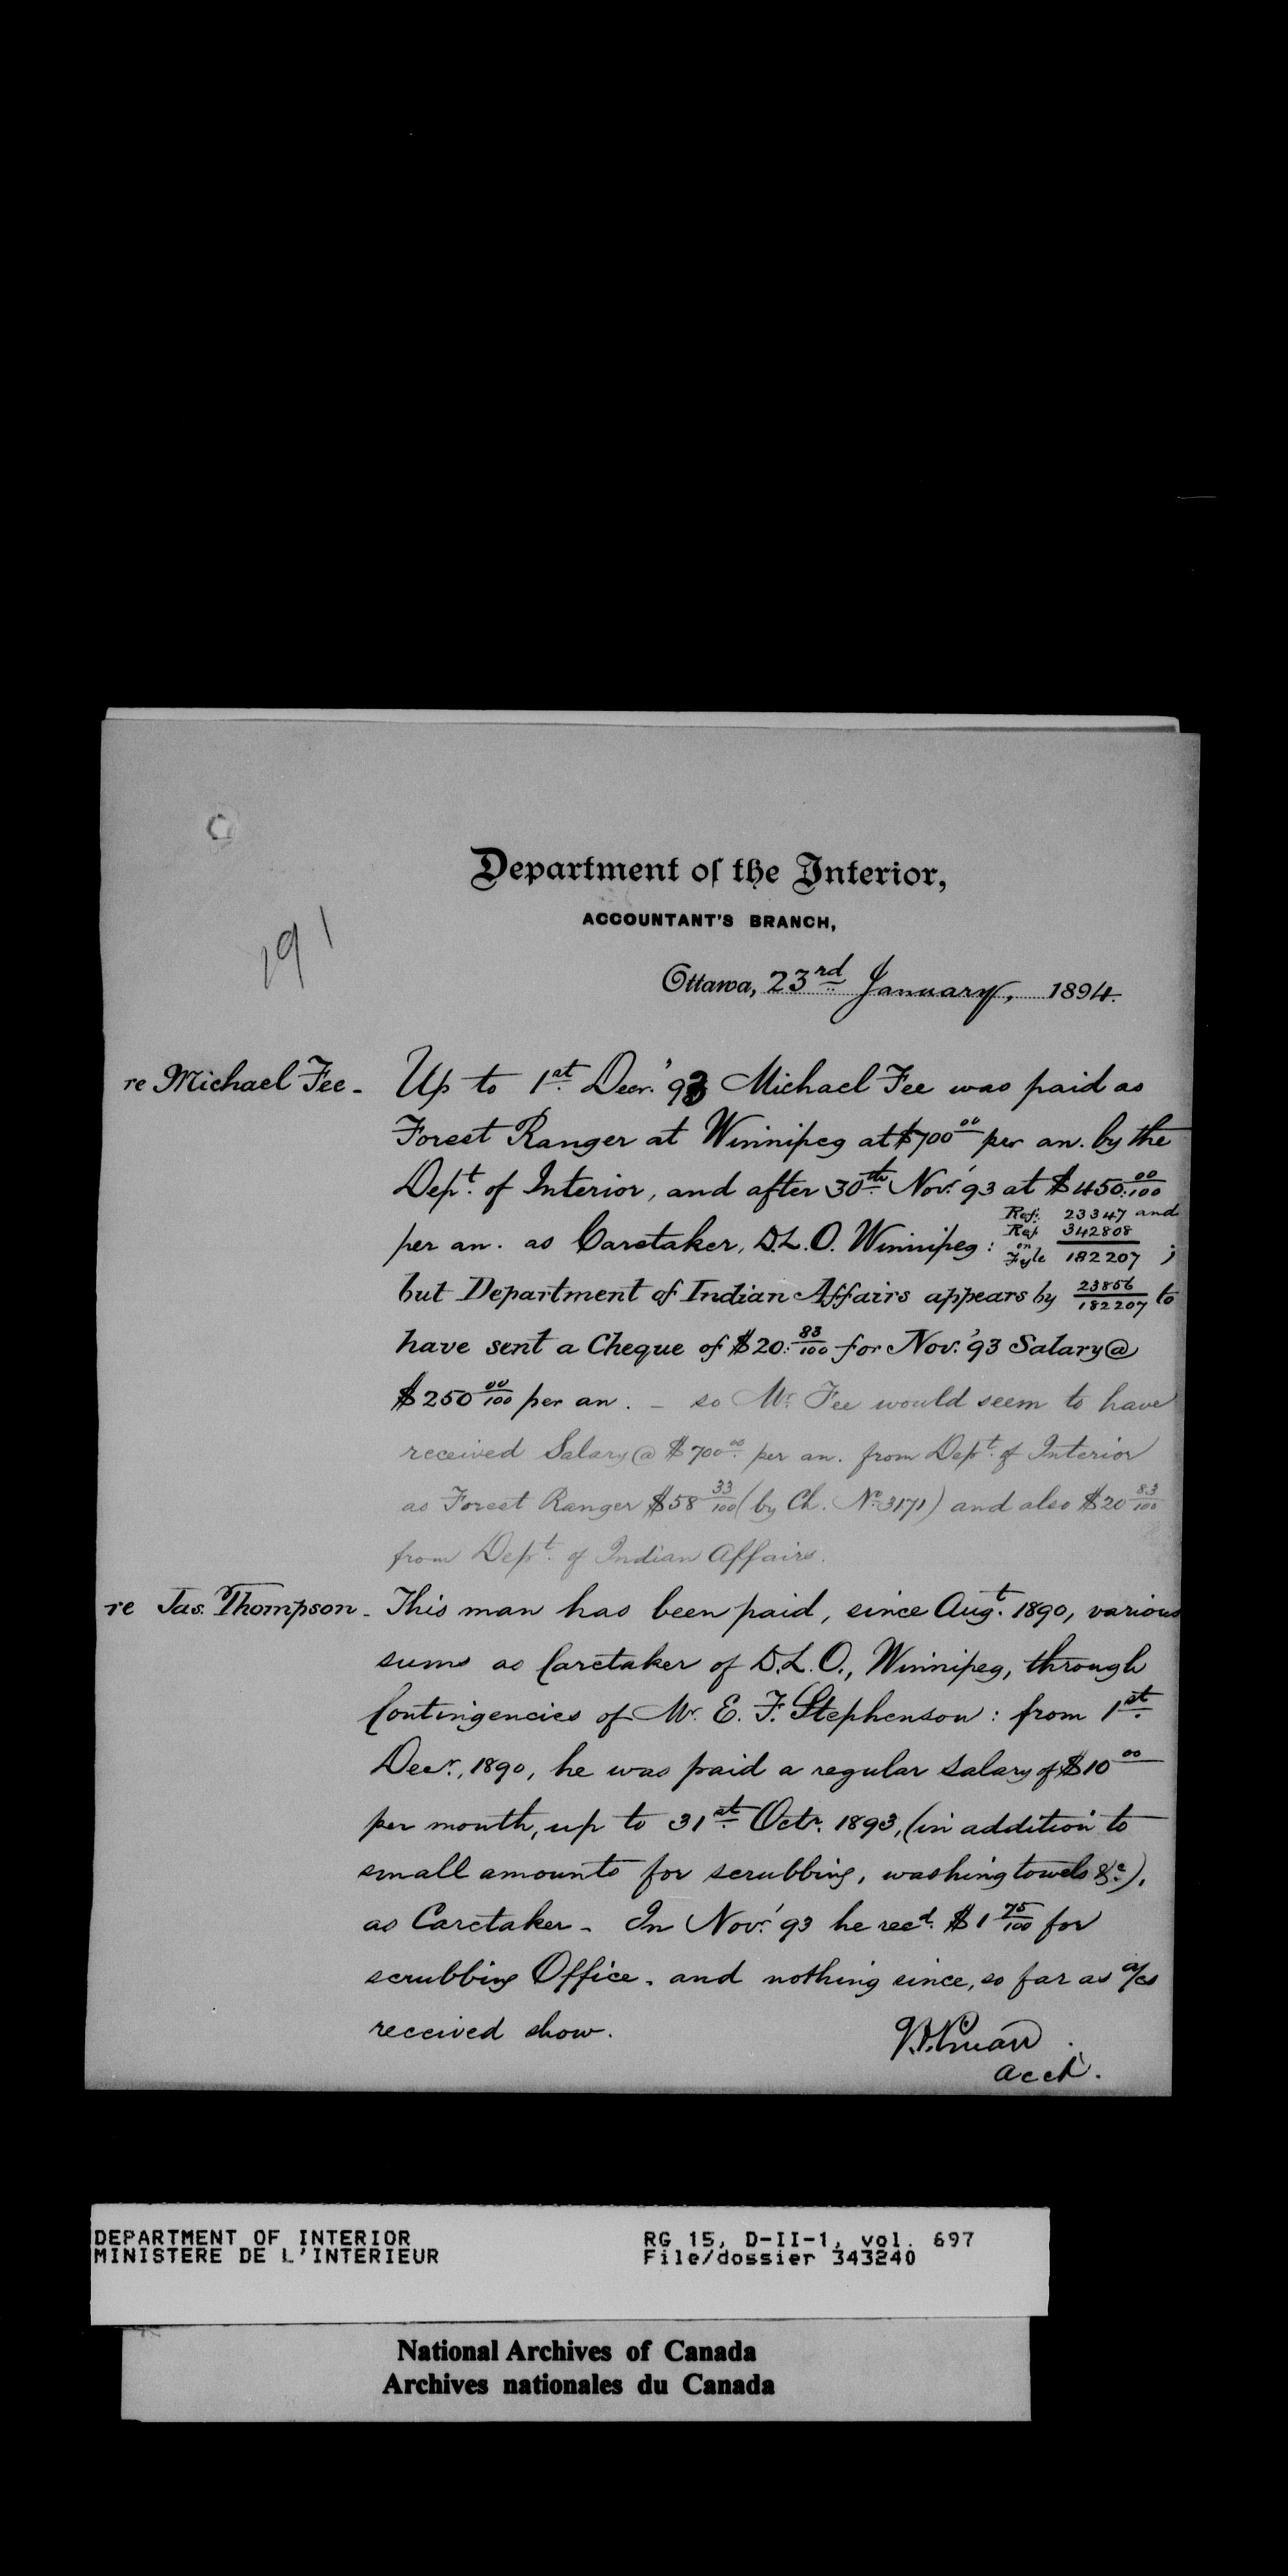 Department of the Interior,
ACCOUNTANT'S BRANCH,
191
Ottawa, 23rd January, 1894.
re Michael Fee - Up to 1st Decr. '93 Michael Fee was paid as
Forest Ranger at Winnipeg at $700 00 per an. by the
Dept. of Interior, and after 30th Nov. '93 at $450 00/100
per an. as Caretaker, D.L.O. Winnipeg : Ref. 23347 and Ref. 342808 on Fyle 182207 ;
but Department of Indian Affairs appears by 23856/182207 to
have sent a Cheque of $20. 83/100 for Nov. '93 Salary @
$250 00/100 per an. - so Mr. Fee would seem to have
received Salary @ $700 00 per an. from Dept. of Interior
as Forest Ranger $58 33/100 (by Ch. No. 3171) and also $20 83/100
from Dept. of Indian Affairs.
re Jas. Thompson - This man has been paid, since Augt. 1890, various
sums as Caretaker of D.L.O., Winnipeg, through
Contingencies of Mr. E. F. Stephenson : from 1st
Decr., 1890, he was paid a regular salary of $10 00
per month, up to 31st Octr. 1893, (in addition to
small amounts for scrubbing, washing towels &c.),
as Caretaker - In Nov. '93 he recd. $1 75/100 for
scrubbing Office - and nothing since, so far as a/cs
received show.
Acct.
DEPARTMENT OF INTERIOR
MINISTERE DE L'INTERIEUR
RG 15, D-II-1, vol. 697
File/dossier 343240
National Archives of Canada
Archives nationales du Canada